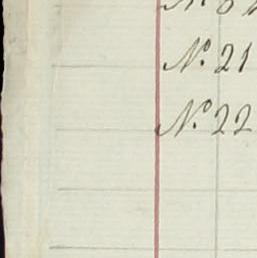 Nº 21
Nº 22